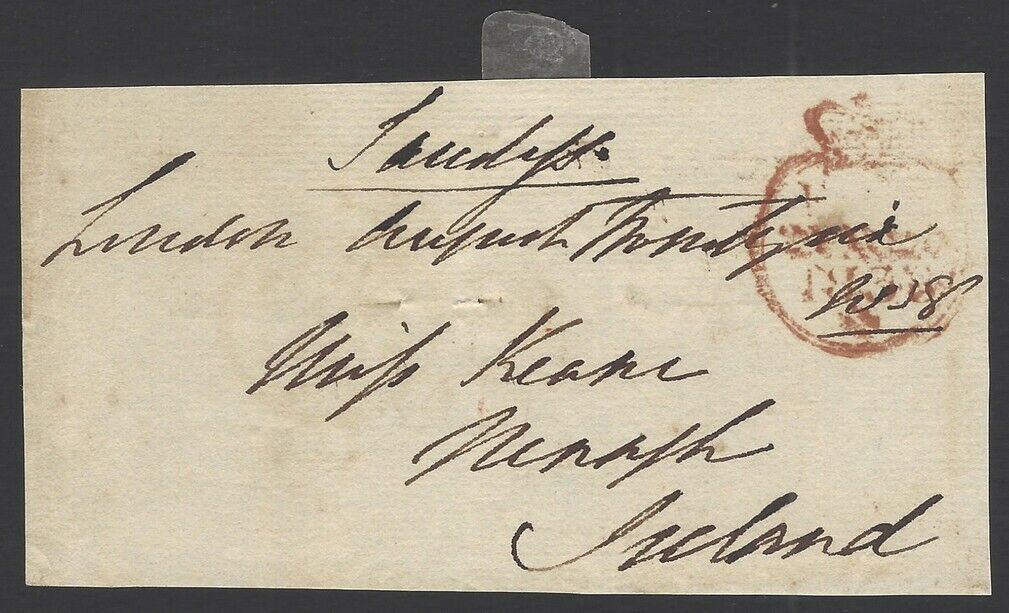 Sandys
London August Twenty six
Miss Keane
Nenagh
Ireland